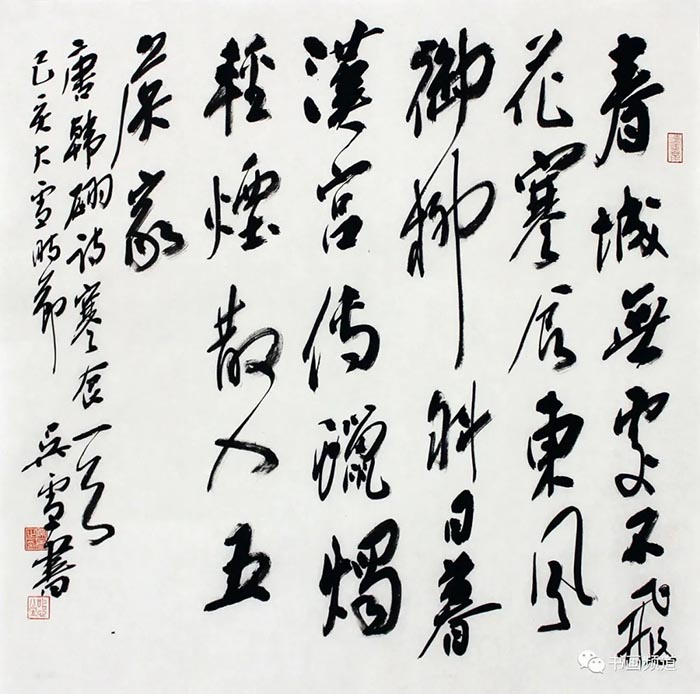 春城無處不飛
花寒食東風
御柳斜日暮
漢宮傳蠟燭
輕煙散入五
侯家
唐韓翃詩寒食一首
己亥大雪時節
吳雪書
书画频道